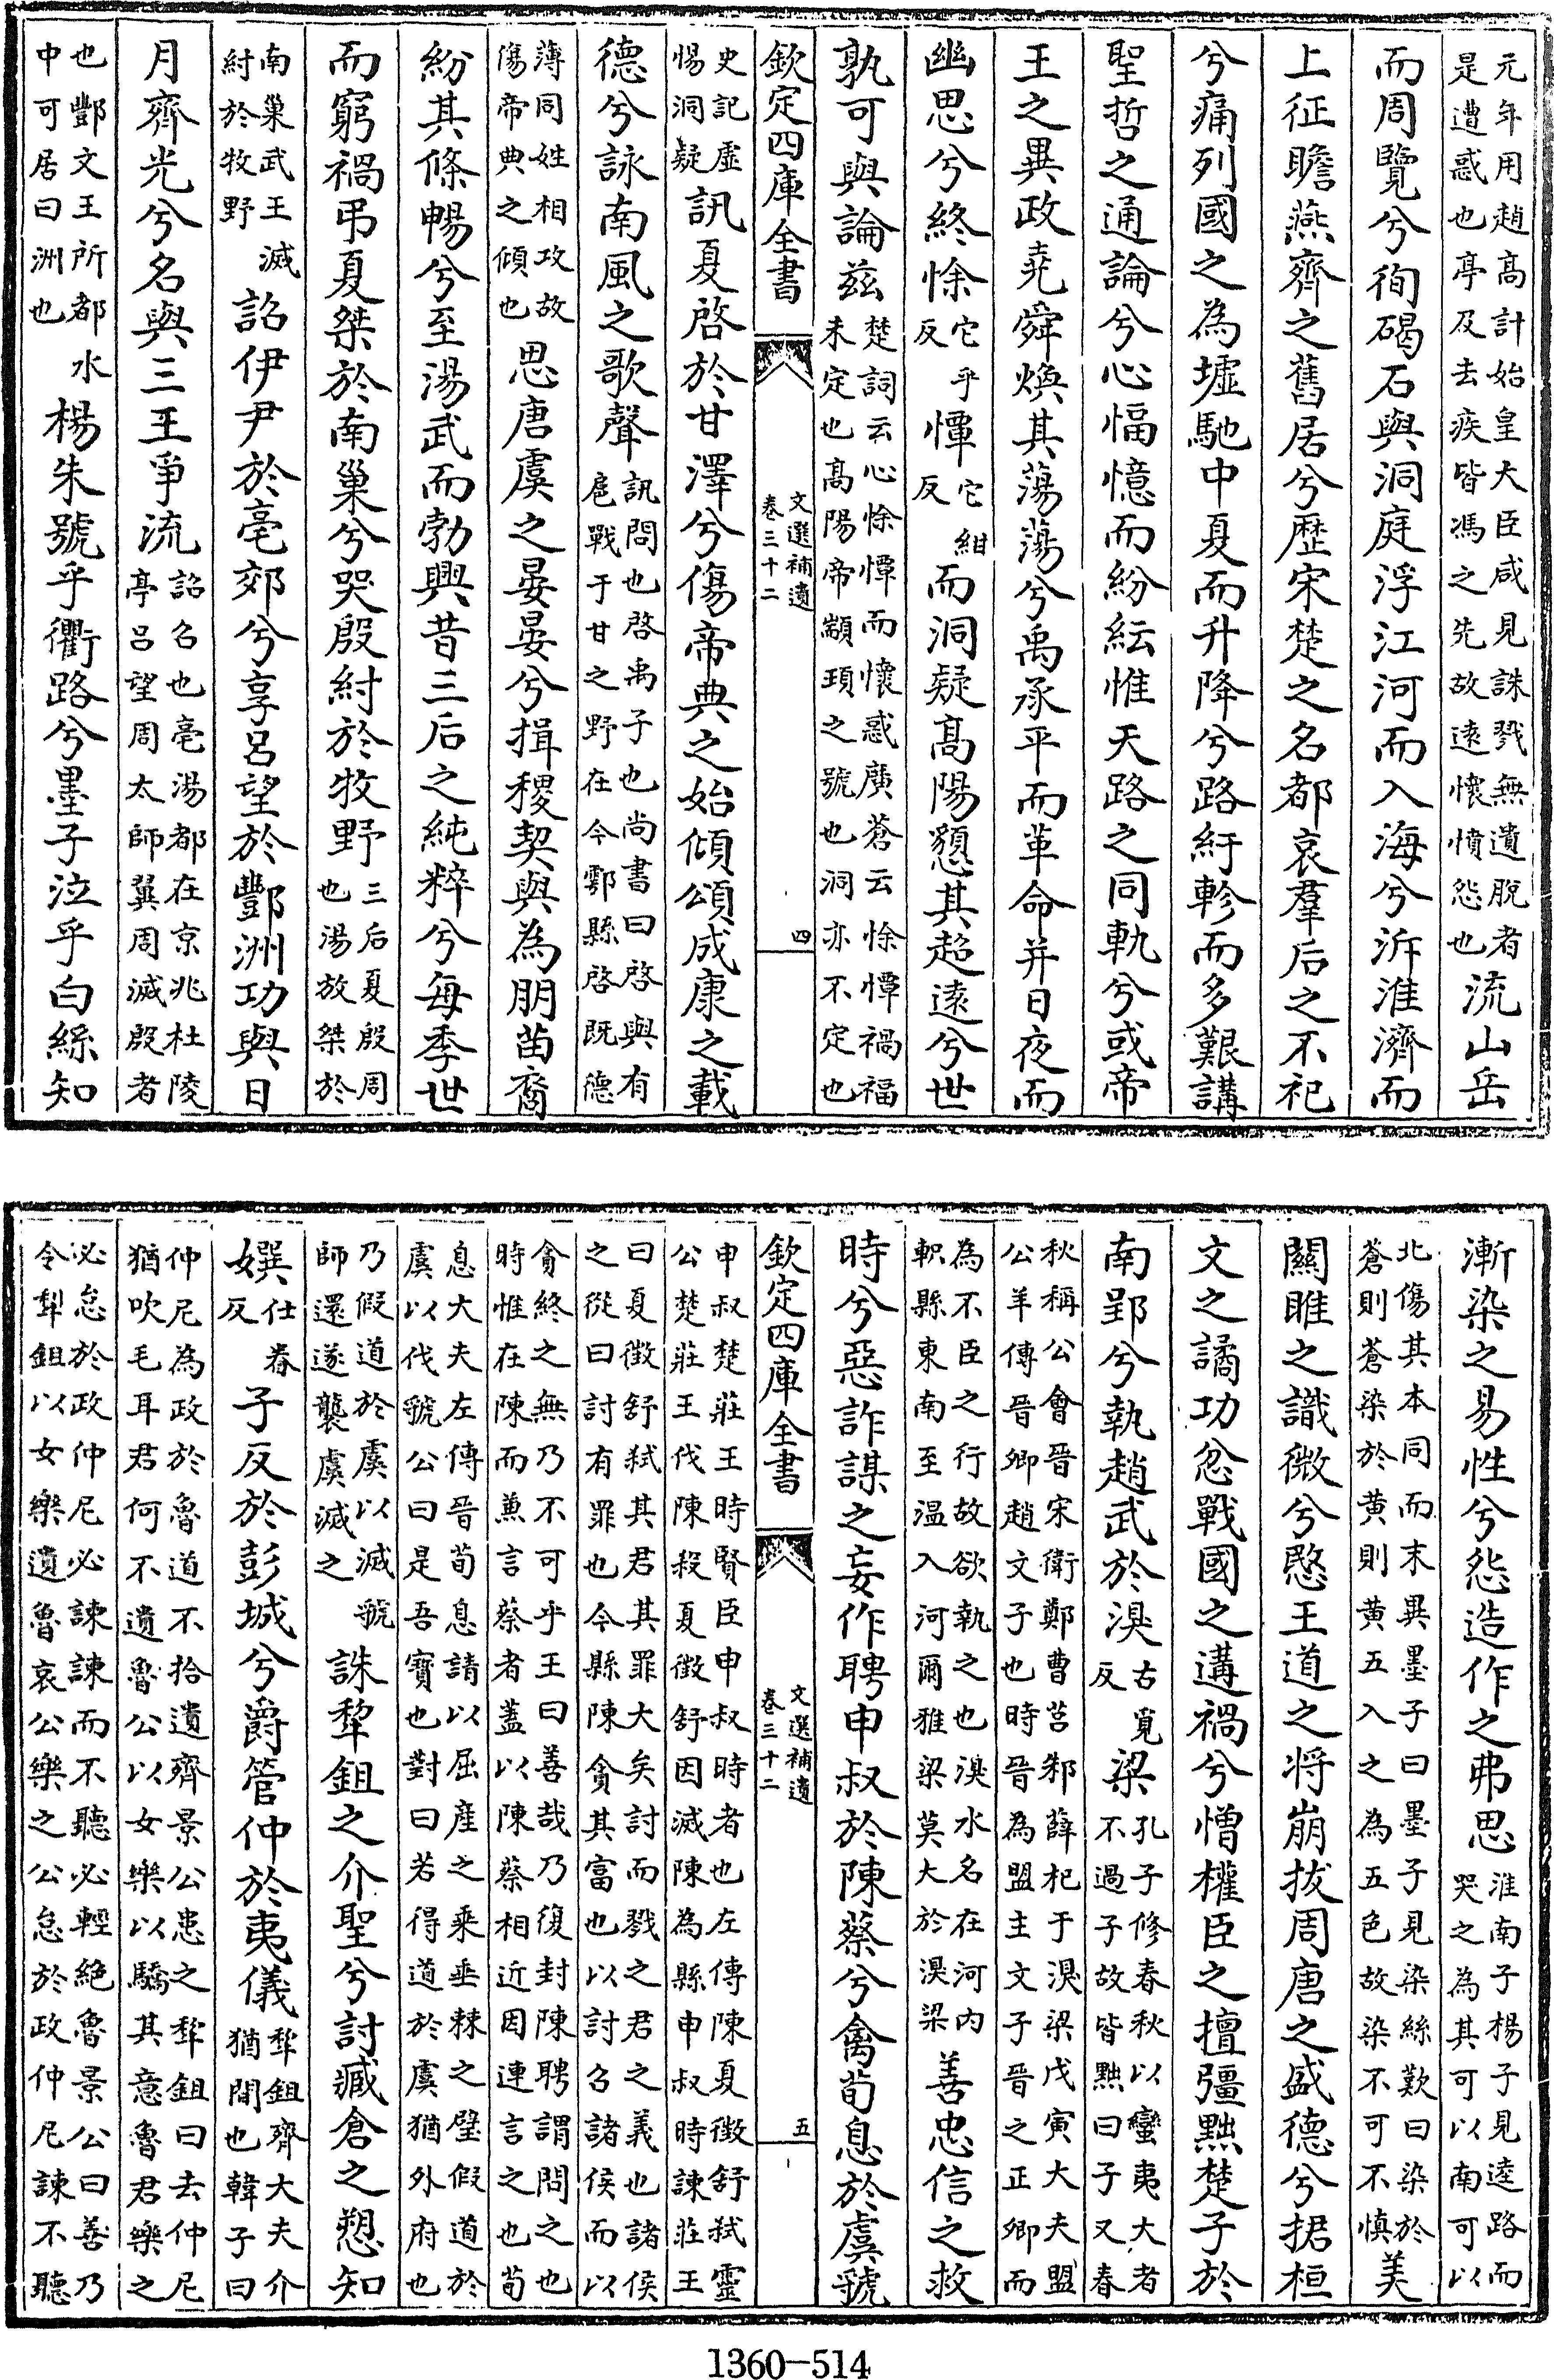 元年用趙髙計始皇大臣咸見誅戮無遺脫者是遭惑也亭及去疾皆馮之先故逺懷憤怨也流山岳
而周覽兮徇碣石與洞庭浮江河而入海兮泝淮濟而
上征瞻燕齊之舊居兮歴宋楚之名都哀羣后之不祀
兮痛列國之為墟馳中夏而升降兮路紆軫而多艱講
聖哲之通論兮心愊憶而紛紜惟天路之同軌兮或帝
王之異政堯舜煥其蕩蕩兮禹承平而革命并日夜而
幽思兮終悇它乎反憛它紺反而洞疑髙陽愬其超逺兮世
孰可與論兹楚詞云心悇憛而懷惑廣蒼云悇憛禍福未定也髙陽帝顓頊之號也洞亦不定也
欽定四庫全書 文選補遺 卷三十二 四
史記虚惕洞疑訊夏啓於甘澤兮傷帝典之始傾頌成康之載
德兮詠南風之歌聲訊問也啓禹子也尚書曰啓與有扈戰于甘之野在今鄠縣啓既德
薄同姓相攻故傷帝典之傾也思唐虞之晏晏兮揖稷契與為朋苗裔
紛其條暢兮至湯武而勃興昔三后之純粹兮每季世
而窮禍弔夏桀於南巢兮哭殷紂於牧野三后夏殷周也湯放桀於
南巢武王滅紂於牧野詔伊尹於亳郊兮享吕望於酆洲功與日
月齊光兮名與三王爭流詔召也亳湯都在京兆杜陵亭吕望周太師翼周滅殷者
也酆文王所都水中可居曰洲也楊朱號乎衢路兮墨子泣乎白絲知
漸染之易性兮怨造作之弗思淮南子楊子見逵路而哭之為其可以南可以
北傷其本同而末異墨子曰墨子見染絲歎曰染於蒼則蒼染於黄則黄五入之為五色故染不可不慎美
關雎之識微兮愍王道之将崩拔周唐之盛德兮捃桓
文之譎功忿戰國之遘禍兮憎權臣之擅彊黜楚子於
南郢兮執趙武於溴古覓反梁孔子修春秋以蠻夷大者不過子故皆黜曰子又春
秋稱公會晉宋衛鄭曹莒邾薛杞于溴梁戊寅大夫盟公羊傳晉卿趙文子也時晉為盟主文子晉之正卿而
為不臣之行故欲執之也溴水名在河内軹縣東南至温入河爾雅梁莫大於溴梁善忠信之救
時兮惡詐謀之妄作聘申叔於陳蔡兮禽荀息於虞虢
欽定四庫全書 文選補遺 卷三十二 五
申叔楚莊王時賢臣申叔時者也左傳陳夏徴舒弑靈公楚莊王伐陳殺夏徴舒因滅陳為縣申叔時諌莊王
曰夏徴舒弑其君其罪大矣討而戮之君之義也諸侯之從曰討有罪也今縣陳貪其富也以討召諸侯而以
貪終之無乃不可乎王曰善哉乃復封陳聘謂問之也時惟在陳而兼言蔡者蓋以陳蔡相近因連言之也荀
息大夫左傳晉荀息請以屈産之乘垂棘之璧假道於虞以伐虢公曰是吾寳也對曰若得道於虞猶外府也
乃假道於虞以滅虢師還遂襲虞滅之誅犂鉏之介聖兮討臧倉之愬知
㜽仕眷反子反於彭城兮爵管仲於夷儀犂鉏齊大夫介猶間也韓子曰
仲尼為政於魯道不拾遺齊景公患之犂鉏曰去仲尼猶吹毛耳君何不遺魯公以女樂以驕其意魯君樂之
必怠於政仲尼必諌諌而不聽必輕絶魯景公曰善乃令犂鉏以女樂遺魯哀公樂之公怠於政仲尼諌不聽
1360—514